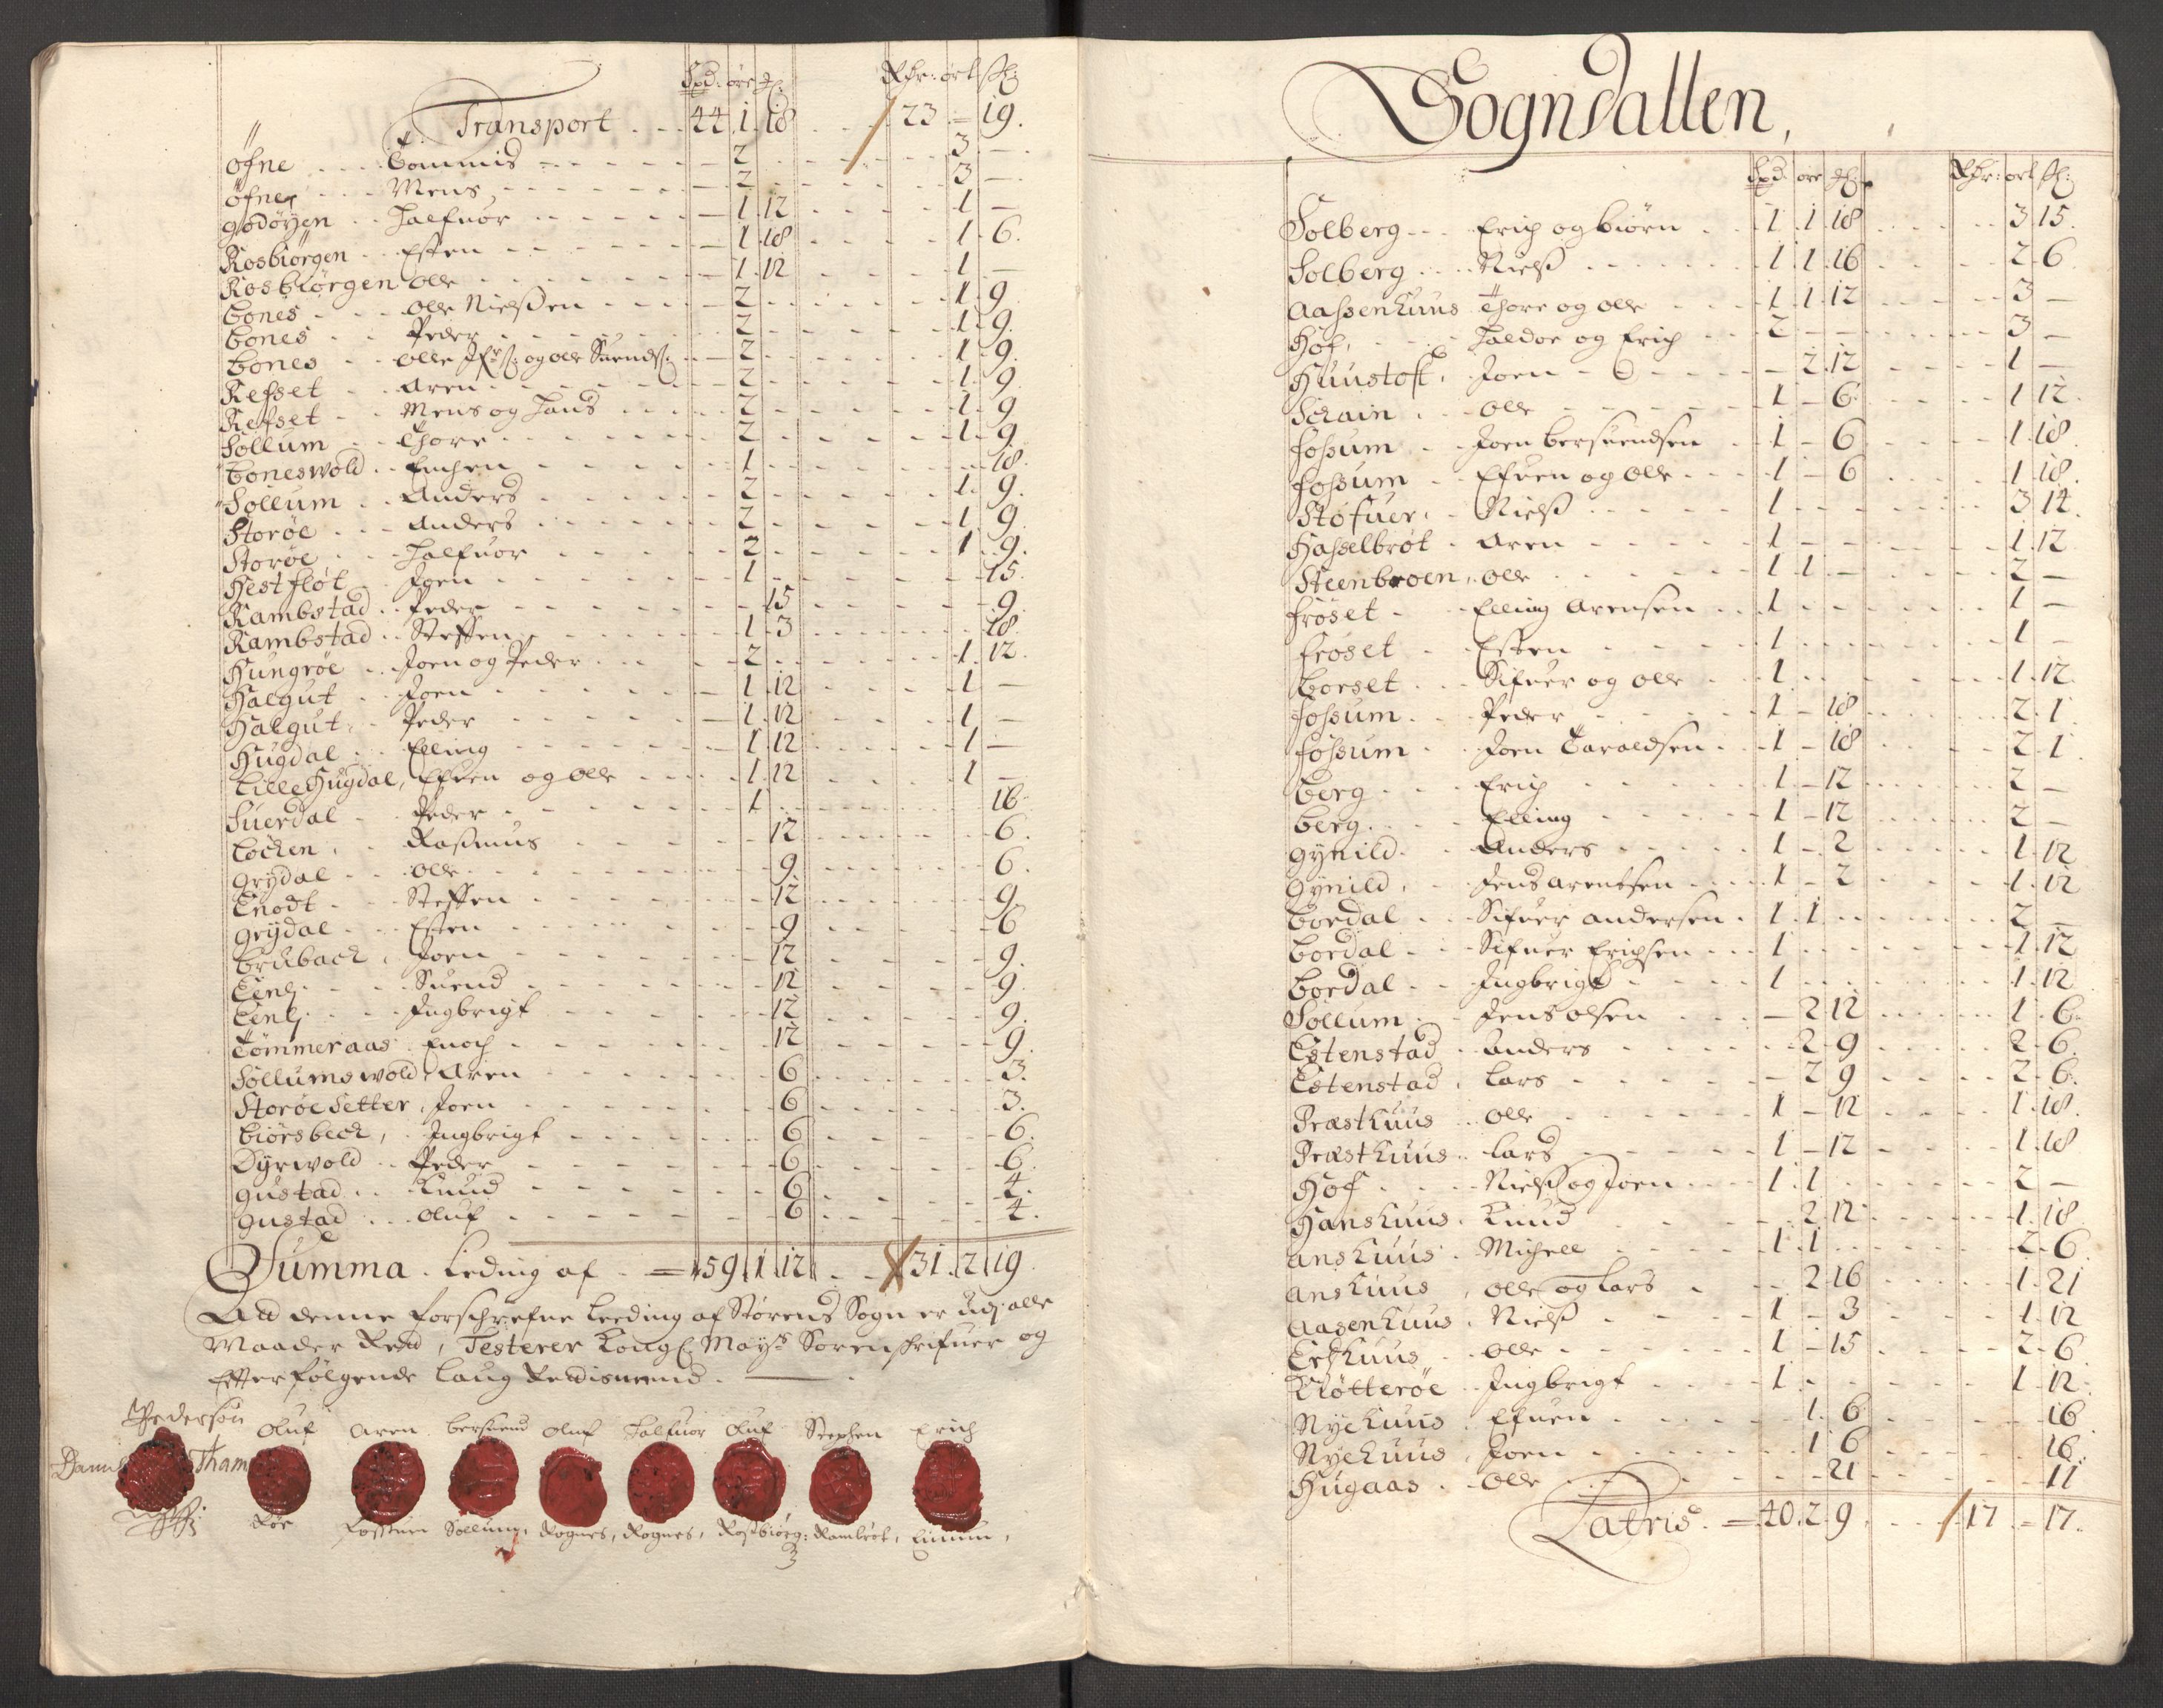 Spd: öre ₰: Rdr: ort ſſ:
Transport 44 1 18 23 – 19.
öfne Tommis 2 3 –
öfne Mens 2 3 –
godöyen Halfuor 1 12 1 –
Rosbiörgen Esten 1 18 1 6.
Rosbiörgen Olle 1 12 1 –
bones Olle Nielsen 2 1 9
bones Peder 2 1 9.
bones Olle og Olle Suends: 2 1 9.
Refset Aren 2 1 9
Refset Mens og Hans 2 1 9
Sollum Thore 2 1 9.
boneswold 1 18.
Sollum Anders 2 1 9.
Storöe Anders 2 1 9
Storöe Halfuor 2 1 9.
Hestflöt Joen 1 15.
Rambstad Peder 15 9.
Rambstad Steffen 1 3 18.
Hungröe Joen og Peder 2 1 12.
Halgut Joen 1 12 1 –
Halgut Peder 1 12 1 –
Hugdal Elling 1 12 1 –
Lille Hugdal, Efuen og Olle 1 12 1 –
Suerdal Peder 1 16
Löchen Rasmus 12 6.
grydal Olle 9 6.
Enodt Steffen 12 9.
grydal Esten 9 6
brubach Joen 12 9.
Eenlj Suend 12 9.
Eenlj Ingbrigt 12 9.
Tömmeraas Enoch 12 9.
Sollumswold, Aren 6 3.
Storöe Setter, Joen 6 3.
biörsbech, Ingbrigt 6 6.
Dyrwold Peder 6 6.
gustad Knud 6 4.
gustad Oluf 6 4.
Summa Leding af = 59 1 12 31 2 19
At denne forschrefne Leeding af Störens Sogn er udj alle
Maader Rett, Testerer Kongl. Mayts Sorenskrifuer og
Efterfölgende Laug Rettismænd.
Pederson Oluf Aren bersuend Oluf Halfuor Oluf Stephen Erich
Tham
Röe Sollum, Rognes, Rognes, Rosbiörg: Rambröt,
Sogndallen,
Spd: öre ₰: Rdr: ort ſſ:
Solberg Erich og biörn 1 1 18 3 15.
Solberg Niels 1 1 16 2 6
Aassenhuus Thore og Olle 1 1 12 3 –
Hof, Haldor og Erich 2 – – 3 –
Huustoft, Joen – 2 12 1 –
Schain Olle 1 – 6 1 12.
fossum Joen bersuendsen 1 – 6 1 18
fossum Efuen og Olle 1 – 6 1 18.
Stöfuer, Niels 1 3 14.
Hasselbröt Aren 1 1 12
Steenbroen, Olle 1 1 – 2 –
fröset Elling Arensen 1 1 –
fröset Esten 1 1 –
borset Sifuer og Olle 1 1 12.
fossum Peder 1 – 18 2 1
fossum Joen Haraldsen 1 – 18 2 1
berg Erich 1 – 12 2 –
berg Elling 1 – 12 2 –
gynild Anders 1 – 2 1 12
gynild, Jens Arentsen 1 – 2 1 12
bordal Sifuer Andersen 1 1 2 –
bordal Sifuer Erichsen 1 1 12
bordal Ingbrigt 1 1 12
Sollum Jens Olsen – 2 12 1 6.
Estenstad Anders – 2 9 2 6.
Estenstad, Lars – 2 9 2 6.
Præsthuus Olle 1 – 12 1 18.
Præsthuus Lars 1 – 12 1 18
Hof Niels og Joen 1 1 2 –
Hanshuus, Knud – 2 12 1 18
anshuus Michell 1 1 2 6.
anshuus, Olle og Lars – 2 16 1 21
Aasenhuus, Niels 1 – 3 1 12
Erchhuus Olle 1 – 15 2 6.
Klötteröe Ingbrigt 1 1 12
Nyehuus Efuen 1 6 16
Nyehuus, Joen 1 6 16.
Hugaas Olle 21 11
Latris = 40 2 9 17 – 17.